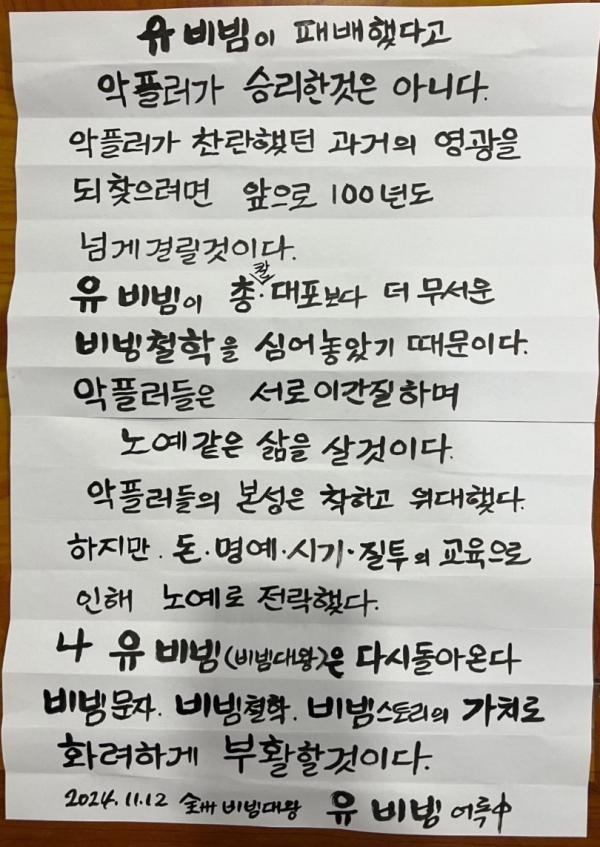 유비빔이 패배했다고
악플러가 승리한것은 아니다.
악플러가 찬란했던 과거의 영광을
되찾으려면 앞으로 100년도
넘게걸릴것이다.
유비빔이 총·칼·대포보다 더 무서운
비빙철학을 심어놓았기 때문이다.
악플러들은 서로이간질하며
노예같은 삶을 살것이다.
악플러들의 본성은 착하고 위대했다.
하지만. 돈·명예·시기·질투의 교육으로
인해 노예로 전락했다.
나 유비빔(비빔대왕)은 다시돌아온다
비빔문자. 비빔철학. 비빔스토리의 가치로
화려하게 부활할것이다.
2024.11.12 비빔대왕 유비빔 어록中